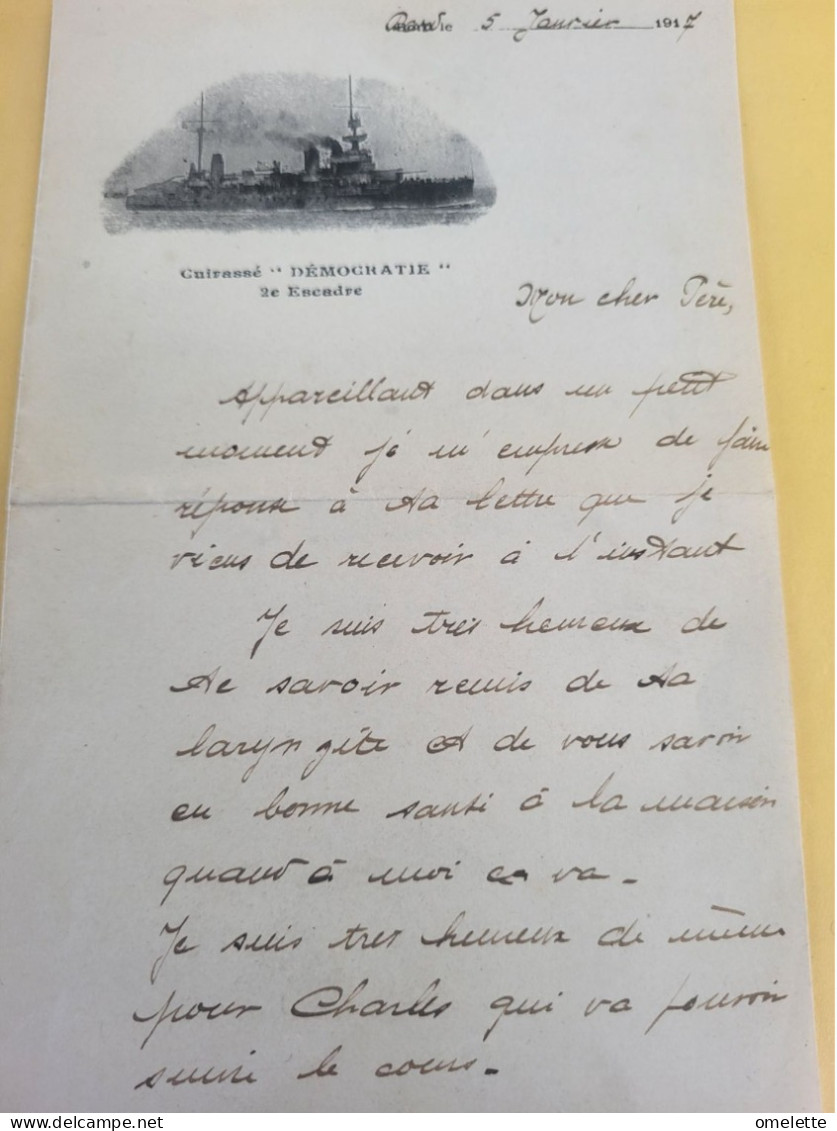 le 5 Janvier 1917
Cuirassé " DÉMOCRATIE "
2e Escadre
Mon cher Père,
Appareillant dans un petit
moment je m'empresse de faire
réponse à ta lettre que je
viens de recevoir à l'instant
Je suis très heureux de
te savoir remis de ta
laryngite et de vous savoir
en bonne santé à la maison
quand à moi ça va -
Je suis tres heureux de même
pour Charles qui va pouvoir
suivre le cours -
omelette